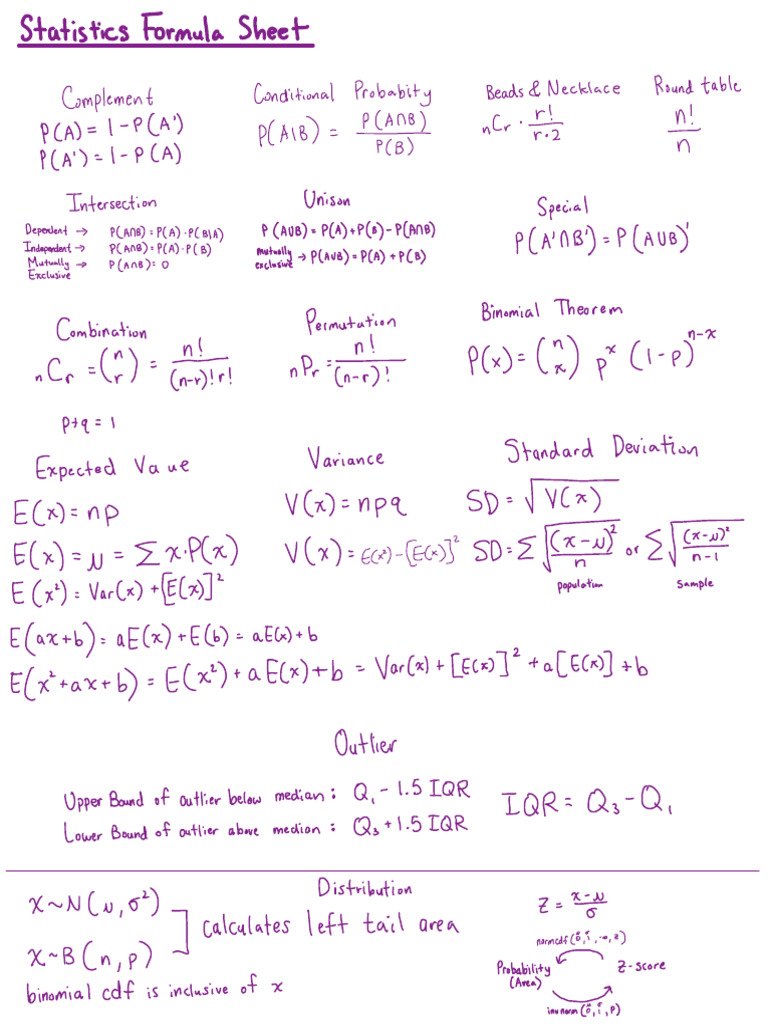 Statistics Formula Sheet
Complement
P(A) = 1 - P(A')
P(A') = 1 - P(A)
Conditional Probabity
P(A|B) = P(A∩B) / P(B)
Beads & Necklace
nCr · r! / r·2
Round table
n! / n
Intersection
Dependent → P(A∩B) = P(A)·P(B|A)
Independent → P(A∩B) = P(A)·P(B)
Mutually Exclusive → P(A∩B) = 0
Unison
P(A∪B) = P(A) + P(B) - P(A∩B)
mutually exclusive → P(A∪B) = P(A) + P(B)
Special
P(A'∩B') = P(A∪B)'
Combination
nCr = (n r) = n! / (n-r)! r!
Permutation
nPr = n! / (n-r)!
Binomial Theorem
P(x) = (n x) p^x (1-p)^n-x
p+q = 1
Expected Value
E(x) = np
E(x) = μ = Σ x·P(x)
E(x²) = Var(x) + [E(x)]²
Variance
V(x) = npq
V(x) = E(x²) - [E(x)]²
Standard Deviation
SD = √V(x)
SD = Σ √(x-μ)² / n or Σ √(x-μ)² / n-1
population
sample
E(ax+b) = aE(x) + E(b) = aE(x) + b
E(x²+ax+b) = E(x²) + aE(x) + b = Var(x) + [E(x)]² + a[E(x)] + b
Outlier
Upper Bound of outlier below median: Q₁ - 1.5 IQR
Lower Bound of outlier above median: Q₃ + 1.5 IQR
IQR = Q₃ - Q₁
Distribution
x~N(μ, σ²)
x~B(n, p)
calculates left tail area
binomial cdf is inclusive of x
Z = x-μ / σ
normcdf(0, 1, -∞, z)
Probability (Area)
Z-score
invnorm(0, 1, P)